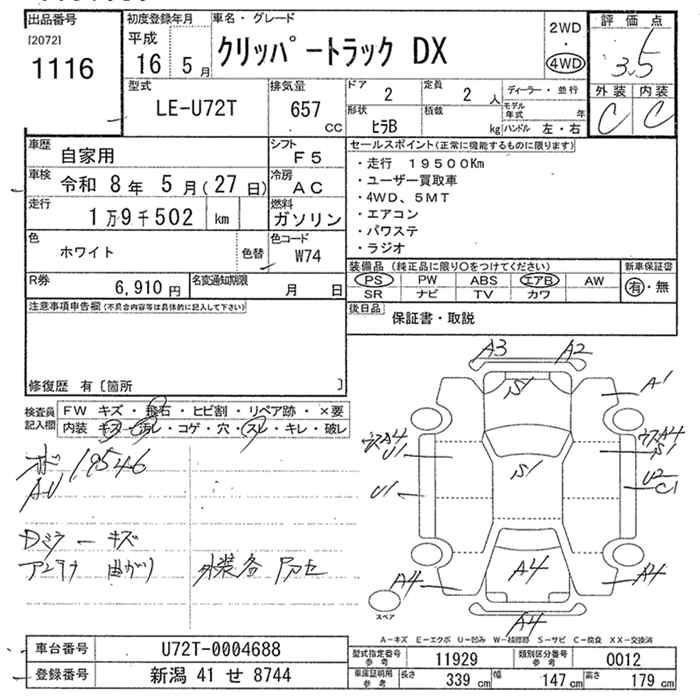 出品番号
[2072]
1116
初度登録年月
平成
16 5月
車名・グレード
クリッパートラック DX
2WD
・
4WD
評価点
3.5
外装 内装
C C
型式
LE-U72T
排気量
657 CC
ドア
2
定員
2 人
形状
ヒラB
積載
kg
ディーラー・並行
モデル年式 年
ハンドル 左・右
車歴
自家用
シフト
F5
車検
令和 8年 5月(27日)
冷房
AC
走行
1万9千502 km
燃料
ガソリン
色
ホワイト
色替
色コード
W74
R券
6,910円
名変通知期限
月 日
セールスポイント(正常に機能するものに限ります)
・走行 19500Km
・ユーザー買取車
・4WD、5MT
・エアコン
・パワステ
・ラジオ
装備品(純正品に限り〇をつけてください)
PS PW ABS エアB AW
SR ナビ TV カワ
新車保証書
有・無
後日品
保証書・取説
注意事項申告欄(不具合内容等は具体的に記入して下さい)
修復歴 有〔箇所 〕
検査員記入欄
FW キズ・飛石・ヒビ割・リペア跡・×要
内装 キズ・汚レ・コゲ・穴・スレ・キレ・破レ
19546
Dミラーキズ
アンテナ曲がり
A3 A2
S1
A1
ウスA4
U1
ウスA4
S1
S1
U1
U2
C1
A4
A4
A4
A4
スペア
A-キズ E-エクボ U-凹み W-補修跡 S-サビ C-腐食 XX-交換済
車台番号
U72T-0004688
登録番号
新潟 41 せ 8744
型式指定番号
参考
11929
類別区分番号
参考
0012
車庫証明用
参考
長さ 339 cm
幅 147 cm
高さ 179 cm